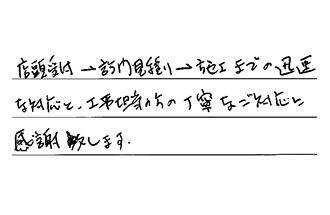 店頭受付→訪問見積り→施工までの迅速
な対応と、工事担当の方の丁寧なご対応に
感謝致します.